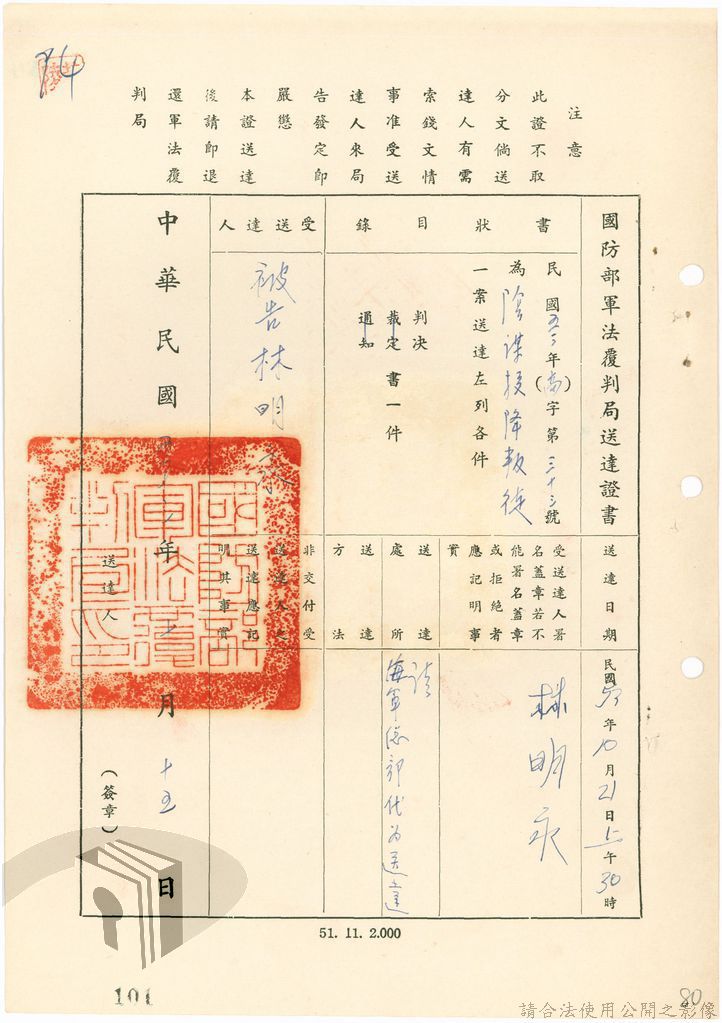 74
注意
此證不取
分文倘送
達人有需
索錢文情
事准受送
達人來局
告發定即
嚴懲
本證送達
後請即退
還軍法覆
判局
國防部軍法覆判局送達證書
書狀目錄
民國五二年(高)字第三十三號
為陰謀投降叛徒
一案送達左列各件
判決
裁定書一件
通知
受送達人
被告林明永
送達日期
民國52年10月21日上午30時
受送達人署
名蓋章若不
能署名蓋章
或拒絕者
應記明事
實
林明永
送達
處所
請
海軍總部代為送達
送達
方法
非交付受
送達人之
送達應記
明其事實
中華民國五十二年 月十五日
送達人
(簽章)
51. 11. 2.000
101
80
請合法使用公開之影像